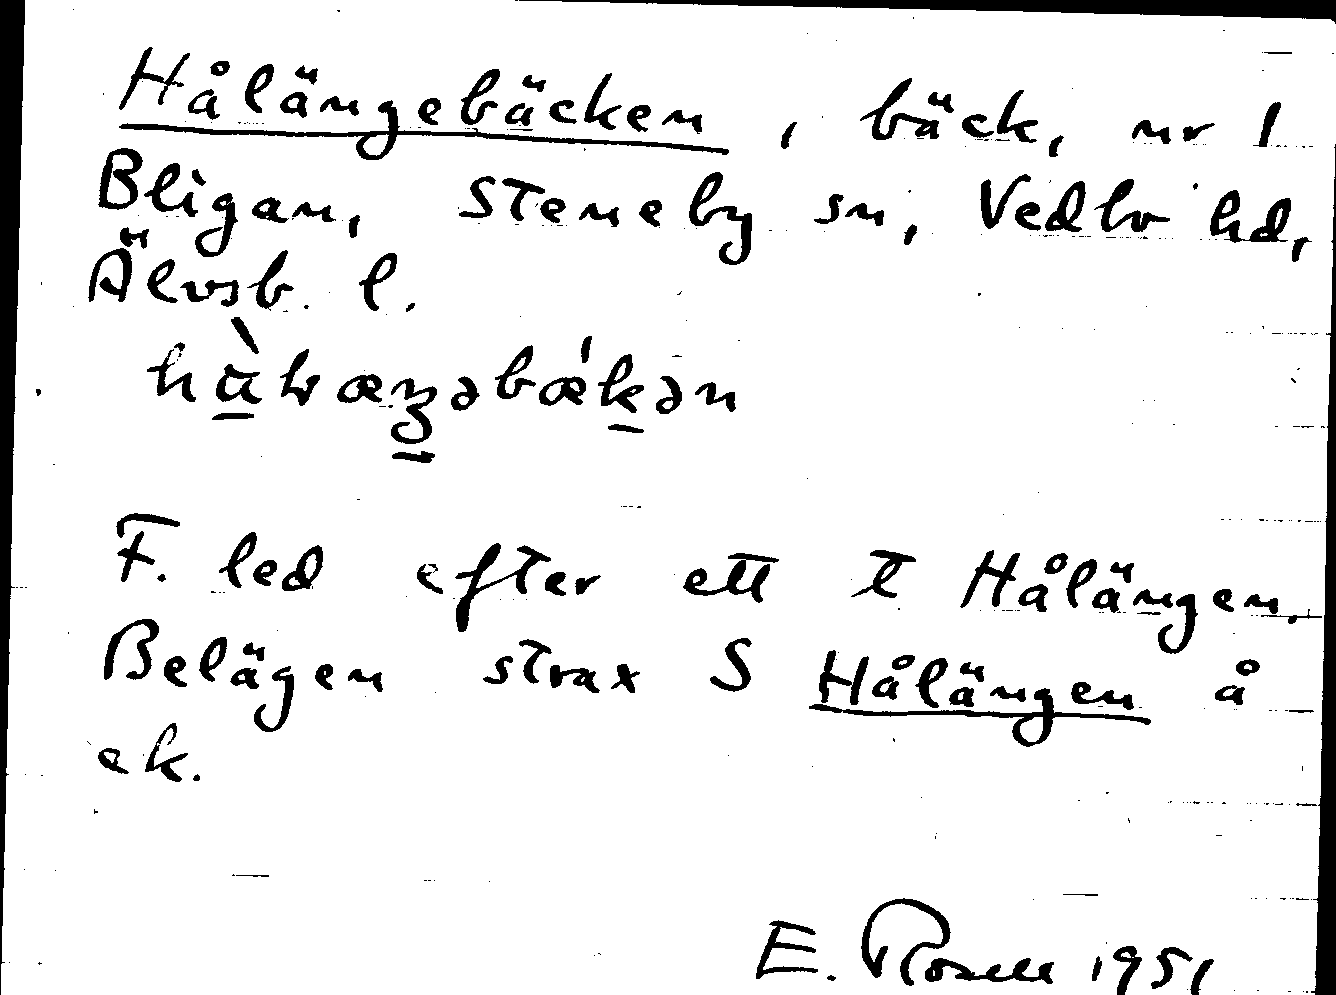 Hålängebäcken, bäck, nr 1
Bligan, Steneby sn, Vedbo hd,
Älvsb. l.
F. led efter ett t Hålängen.
Belägen strax S Hålängen å
ek.
E. Rosell 1951